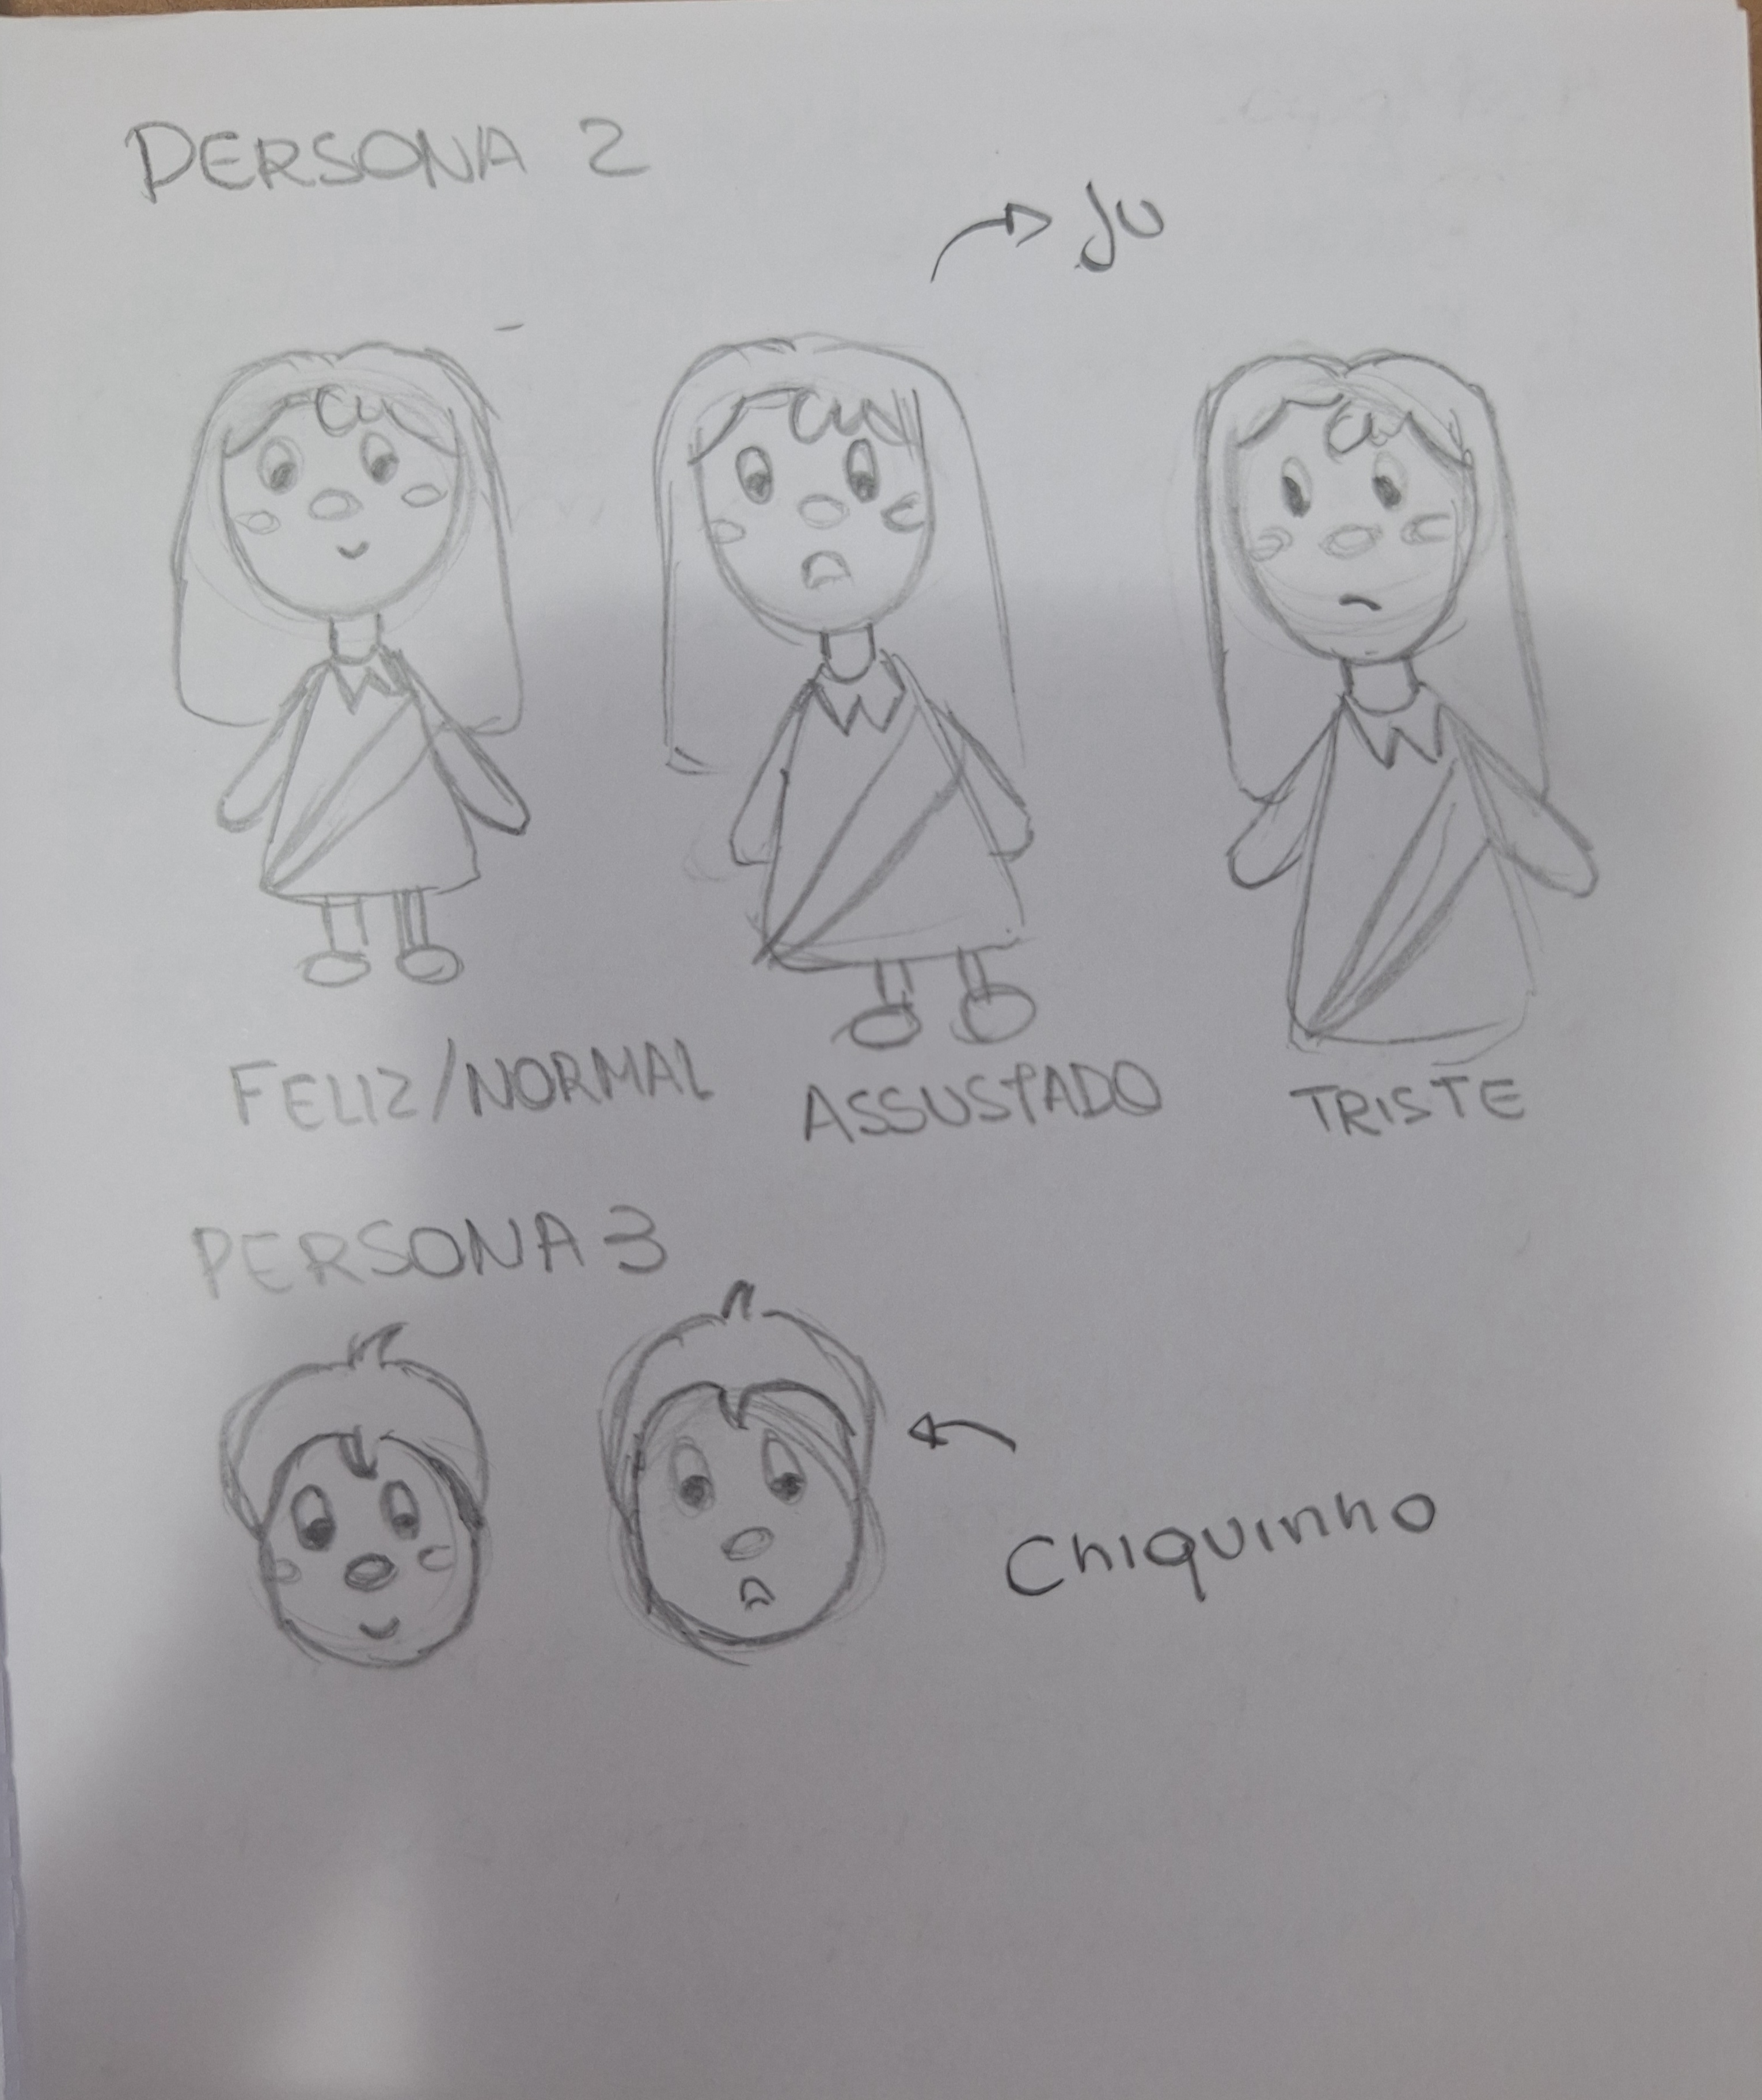 PERSONA 2
Ju
FELIZ/NORMAL
ASSUSTADO
TRISTE
PERSONA 3
Chiquinho